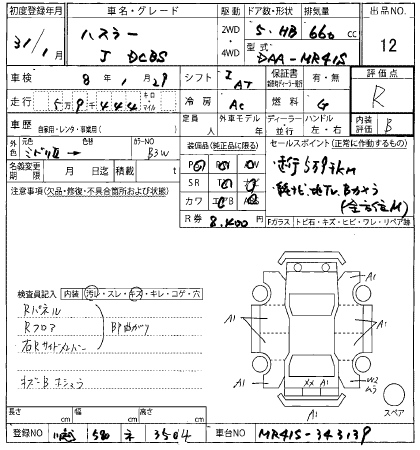 初度登録年月 車名・グレード 駆動 ドア数・形状 排気量 出品NO.
31/1月 ハスラー 2WD 5 HB 660 cc 12
J DCBS 4WD 型式 DAA-MR41S
車検 8年1月29 シフト I AT 保証書 有・無 評価点
走行 59444 キロ・マイル 冷房 AC 燃料 G R
車歴 自家用・レンタ・事業用( ) 定員 人 外車モデル 年 ディーラー 並行 ハンドル 左・右 内装評価 B
外色 元色 色替 カラーNO B3W
名義変更期限 月 日迄 積載 t
装備品(純正品に限る)
PS PW
SR ナビ
カワ エアB
R券 8,400
セールスポイント(正常に作動するもの)
・走行59千km
・純ナビ・地TV・Bカメラ
Fガラス トビ石・キズ・ヒビ・ワレ・リペア跡
注意事項(欠品・修復・不具合箇所および状態)
検査員記入 内装 汚レ・スレ・キズ・キレ・コゲ・穴
Rパネル
Rフロア
右Rサイドメンバー
BP曲がり
A1 A1
A1 A1
A1 A1
XX A1
W2
A1
スペア
長さ cm 幅 cm 高さ cm
登録NO 川越 580 ネ 3504 車台NO MR41S-343139